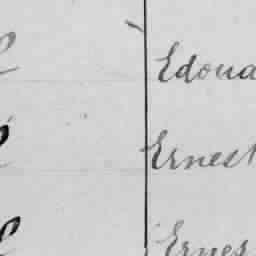 Edoua
Ernest
Ernes